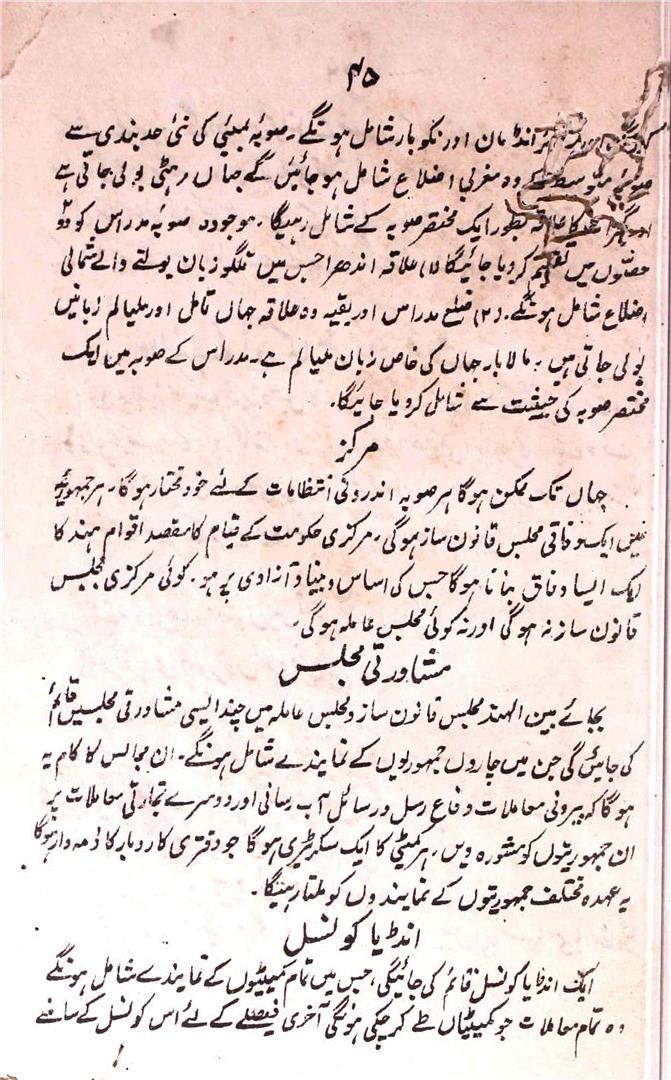 ۴۵
اور جزائر انڈمان اور نکوبار شامل ہونگے۔ صوبہ بمبئی کی نئی حد بندی سے
صوبہ متوسط کے وہ مغربی اضلاع شامل ہو جائیں گے جہاں مرہٹی بولی جاتی ہے
کا علاقہ بطور ایک مختصر صوبہ کے شامل رہیگا۔ موجودہ صوبہ مدراس کو دو
حصوں میں تقسیم کر دیا جائیگا (۱) علاقہ اندھرا جس میں تلگو زبان بولنے والے شمالی
اضلاع شامل ہونگے۔ (۲) ضلع مدراس اور بقیہ وہ علاقہ جہاں تامل اور ملیالم زبانیں
بولی جاتی ہیں۔ مالا بار جہاں کی خاص زبان ملیالم ہے۔ مدراس کے صوبہ میں ایک
مختصر صوبہ کی حیثیت سے شامل کر دیا جائیگا۔
مرکز
جہاں تک ممکن ہوگا ہر صوبہ اندرونی انتظامات کے لئے خود مختار ہوگا۔ ہر جمہوریہ
میں ایک وفاقی مجلس قانون ساز ہوگی۔ مرکزی حکومت کے قیام کا مقصد اقوام ہند کا
ایک ایسا وفاق بنانا ہوگا جس کی اساس و بنیاد آزادی پر ہو۔ کوئی مرکزی مجلس
قانون ساز نہ ہوگی اور نہ کوئی مجلس عاملہ ہوگی۔
مشاورتی مجلس
بجائے بین الہند مجلس قانون ساز و مجلس عاملہ میں چند ایسی مشاورتی مجلسیں قائم
کی جائیں گی جن میں چاروں جمہوریوں کے نمایندے شامل ہونگے۔ ان مجالس کا کام یہ
ہوگا کہ بیرونی معاملات دفاع رسل و رسائل آب رسانی اور دوسرے تجارتی معاملات پر
ان جمہوریتوں کو مشورہ دیں۔ ہر کمیٹی کا ایک سکرٹیری ہوگا جو دفتری کاروبار کا ذمہ دار ہوگا
یہ عہدہ مختلف جمہوریتوں کے نمایندوں کو ملتا رہیگا۔
انڈیا کونسل
ایک انڈیا کونسل قائم کی جائیگی، جس میں تمام کمیٹیوں کے نمایندے شامل ہونگے
وہ تمام معاملات جو کمیٹیاں طے کر چکی ہونگی آخری فیصلے کے لئے اس کونسل کے سامنے